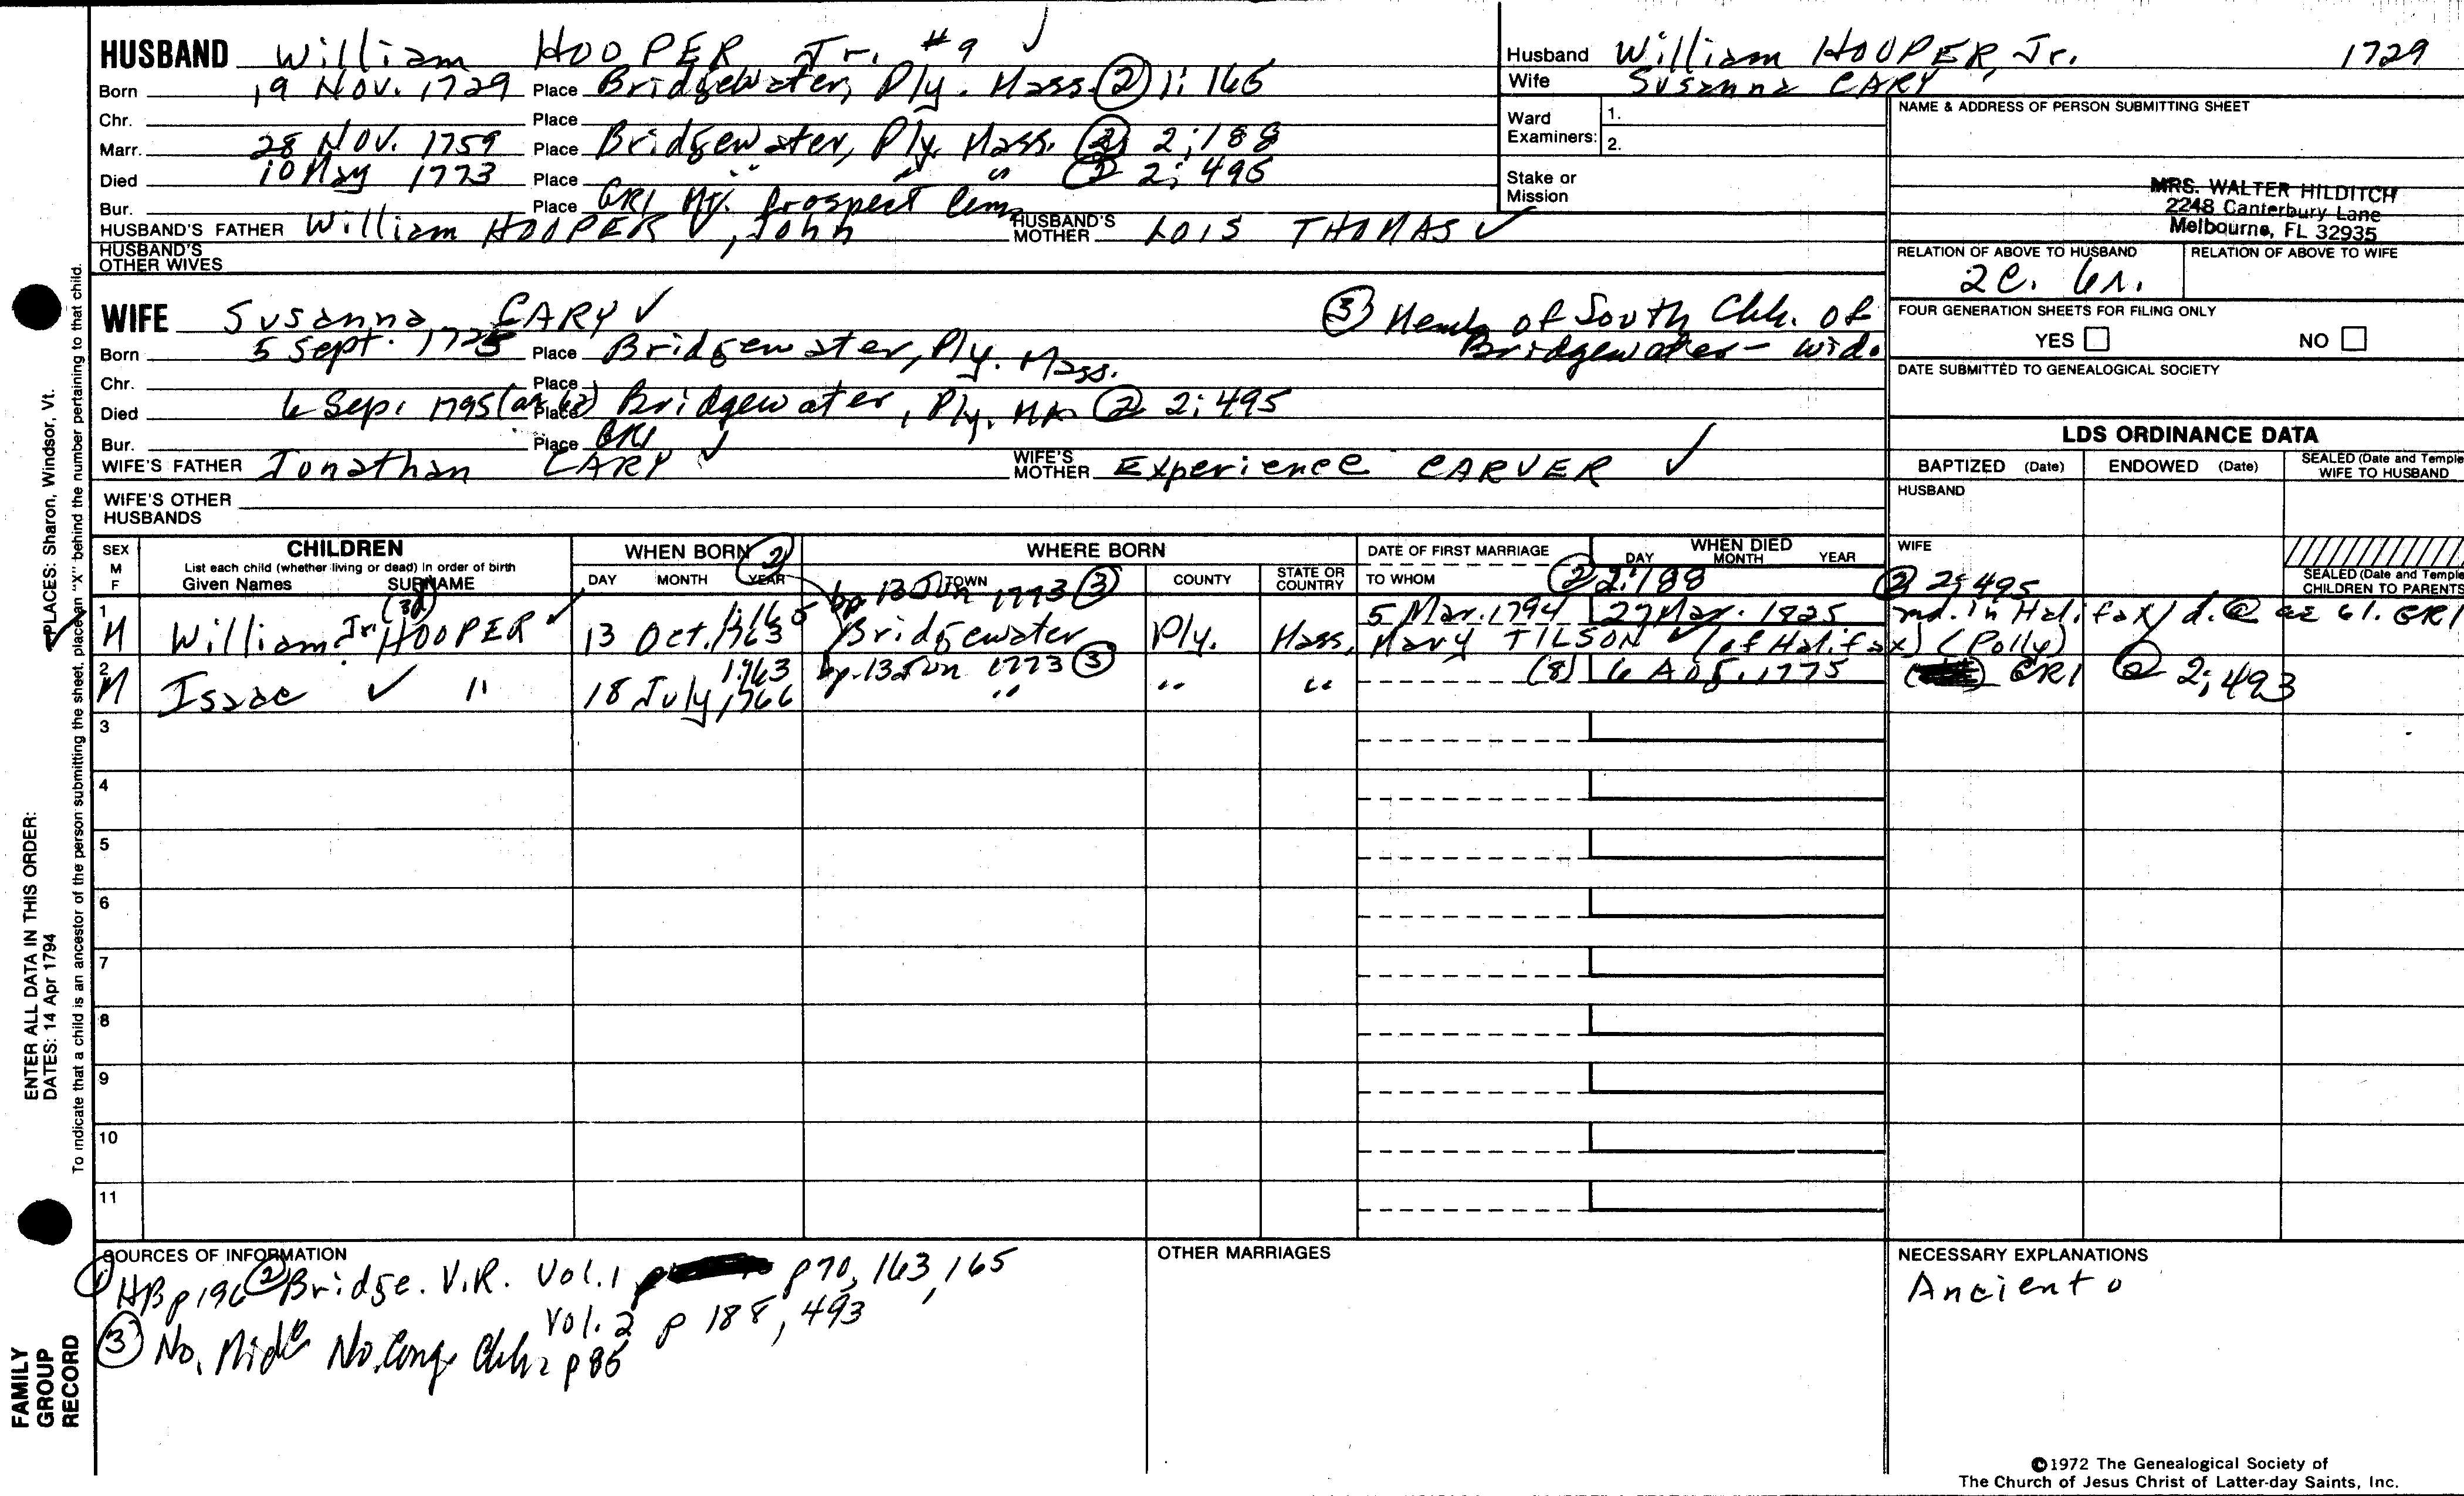 HUSBAND William HOOPER Jr. #9 ✓
Born 19 Nov. 1729 Place Bridgewater, Ply. Mass. ② 1:165
Chr. Place
Marr. 28 Nov. 1759 Place Bridgewater, Ply. Mass. ② 2:188
Died 10 May 1773 Place " " " ② 2:495
Bur. Place GR1 Mt. Prospect Cem.
HUSBAND'S FATHER William HOOPER ✓, John HUSBAND'S MOTHER Lois THOMAS ✓
HUSBAND'S OTHER WIVES
Husband William HOOPER, Jr. 1729
Wife Susanna CARY
Ward Examiners: 1.
2.
Stake or Mission
NAME & ADDRESS OF PERSON SUBMITTING SHEET
MRS. WALTER HILDITCH
2248 Canterbury Lane
Melbourne, FL 32935
RELATION OF ABOVE TO HUSBAND RELATION OF ABOVE TO WIFE
2C. 6r.
FOUR GENERATION SHEETS FOR FILING ONLY
YES NO
DATE SUBMITTED TO GENEALOGICAL SOCIETY
WIFE Susanna CARY ✓
③ Memb of South Chh. of
Bridgewater - wid.
Born 5 Sept. 1725 Place Bridgewater, Ply. Mass.
Chr. Place
Died 6 Sep. 1795 Place Bridgewater, Ply. MA ② 2:495
Bur. Place GR1
WIFE'S FATHER Jonathan CARY ✓ WIFE'S MOTHER Experience CARVER ✓
WIFE'S OTHER HUSBANDS
LDS ORDINANCE DATA
BAPTIZED (Date) ENDOWED (Date) SEALED (Date and Temple) WIFE TO HUSBAND
HUSBAND
WIFE
SEALED (Date and Temple) CHILDREN TO PARENTS
SEX M F
CHILDREN
List each child (whether living or dead) in order of birth
Given Names SURNAME
WHEN BORN ②
DAY MONTH YEAR
WHERE BORN
TOWN COUNTY STATE OR COUNTRY
DATE OF FIRST MARRIAGE
TO WHOM
WHEN DIED
DAY MONTH YEAR
② 2:188 ② 2:495
1 M William Jr. (3d) HOOPER ✓ 13 Oct. 1763 1:165 bp 13 Jun 1773 ③ Bridgewater Ply. Mass. 5 Mar. 1794 27 Mar. 1825 md. in Halifax/d. @ ae 61. GR1
Mary TILSON ✓ (of Halifax) (Polly)
2 M Isaac ✓ " 18 July 1766 1:163 bp. 13 Jun 1773 ③ " " " (8) 6 Aug. 1775 GR1 ② 2:493
3
4
5
6
7
8
9
10
11
SOURCES OF INFORMATION
① HB p 196 ② Bridge. V.R. Vol. 1 p 70, 163, 165
Vol. 2 p 188, 493
③ No. No. Cong. Chh. p 86
OTHER MARRIAGES
NECESSARY EXPLANATIONS
Ancient o
©1972 The Genealogical Society of
The Church of Jesus Christ of Latter-day Saints, Inc.
PLACES: Sharon, Windsor, Vt.
ENTER ALL DATA IN THIS ORDER:
DATES: 14 Apr 1794
To indicate that a child is an ancestor of the person submitting the sheet, place an "X" behind the number pertaining to that child.
FAMILY
GROUP
RECORD